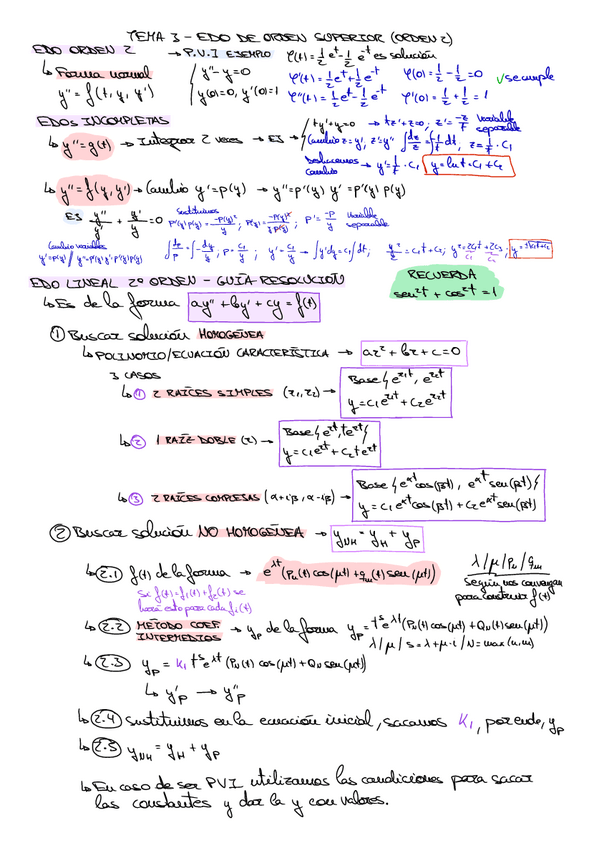 TEMA 3 - EDO DE ORDEN SUPERIOR (ORDEN 2)
EDO ORDEN 2
→ P.V.I EJEMPLO φ(t) = 1/2 e^t - 1/2 e^-t es solución
↳ Forma normal
y'' = f(t, y, y')
{ y'' - y = 0
y(0) = 0, y'(0) = 1
φ'(t) = 1/2 e^t + 1/2 e^-t φ(0) = 1/2 - 1/2 = 0 ✓ se cumple
φ''(t) = 1/2 e^t - 1/2 e^-t φ'(0) = 1/2 + 1/2 = 1
EDOS INCOMPLETAS
↳ y'' = g(t) → Integrar 2 veces → EJ → { ty'' + y' = 0 → tz' + z = 0; z' = -z/t variable separable
Cambio z = y', z' = y''
Deshacemos cambio → y' = 1/t · C1 y = ln t · C1 + C2
↳ y'' = f(y, y') → Cambio y' = p(y) → y'' = p'(y) y' = p'(y) p(y)
EJ y''/y' + y'/y = 0 Sustituimos P' = -P/y variable separable
Cambio variables
y' = p(y) / y'' = p'(y) y' = p'(y) p(y)
∫ dp/p = ∫ -dy/y; p = C1/y; y' = C1/y → ∫ y dy = C1 ∫ dt;
EDO LINEAL 2º ORDEN - GUÍA RESOLUCIÓN
RECUERDA
sen²t + cos²t = 1
↳ Es de la forma ay'' + by' + cy = f(t)
① Buscar solución HOMOGÉNEA
↳ POLINOMIO/ECUACIÓN CARACTERÍSTICA → ar² + br + c = 0
3 CASOS
↳ ① 2 RAÍCES SIMPLES (r1, r2) → Base { e^r1t, e^r2t
y = C1e^r1t + C2e^r2t
↳ ② 1 RAÍZ DOBLE (r) → Base { e^rt, te^rt }
y = C1e^rt + C2te^rt
↳ ③ 2 RAÍCES COMPLEJAS (α+iβ, α-iβ) → Base { e^αt cos(βt), e^αt sen(βt) }
y = C1e^αt cos(βt) + C2e^αt sen(βt)
② Buscar solución NO HOMOGÉNEA → yNH = yH + yP
↳ 2.1 f(t) de la forma → e^λt (Pn(t) cos(μt) + qm(t) sen(μt))
λ / μ / Pn / qm
según nos convengan
para construir f(t)
Si f(t) = f1(t) + f2(t) se
hará esto para cada fi(t)
↳ 2.2 MÉTODO COEF. INTERMEDIOS → yp de la forma yp = t^s e^λt (PN(t) cos(μt) + QN(t) sen(μt))
λ / μ / s = λ + μ·i / N = max(n, m)
↳ 2.3 yp = K1 t^s e^λt (PN(t) cos(μt) + QN sen(μt))
↳ y'p → y''p
↳ 2.4 Sustituimos en la ecuación inicial, sacamos K1, por ende, yp
↳ 2.5 yNH = yH + yp
↳ En caso de ser PVI utilizamos las condiciones para sacar
las constantes y dar la y con valores.